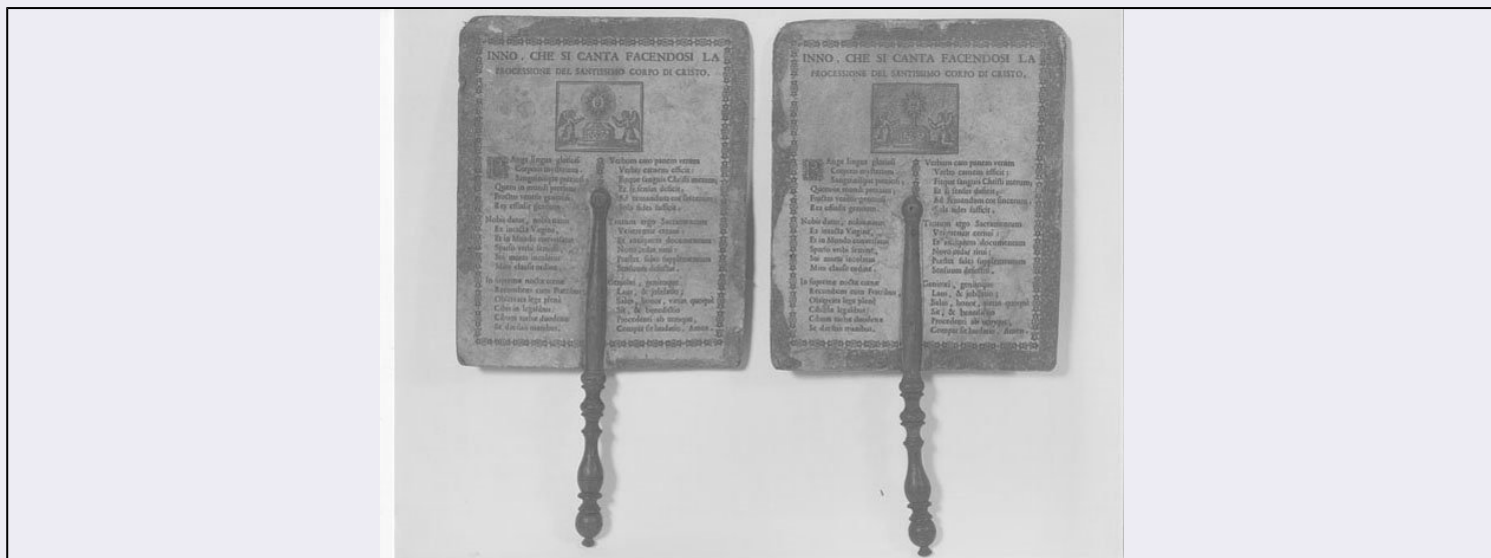 INNO, CHE SI CANTA FACENDOSI LA
PROCESSIONE DEL SANTISSIMO CORPO DI CRISTO.
PAnge lingua gloriosi
Corporis mysterium,
Sanguinisque pretiosi,
Quem in mundi pretium
Fructus ventris generosi
Rex effudit gentium.
Nobis datus, nobis natus
Ex intacta Virgine,
Et in Mundo conversatus
Sparso verbi semine,
Sui moras incolatus
Miro clausit ordine.
In supremæ nocte cœnæ
Recumbens cum Fratribus,
Observata lege plenè
Cibis in legalibus:
Cibum turbæ duodenæ
Se dat suis manibus.
Verbum caro panem verum
Verbo carnem efficit:
Fitque sanguis Christi merum,
Et si sensus deficit,
Ad firmandum cor sincerum,
Sola fides sufficit.
Tantum ergo Sacramentum
Veneremur cernui:
Et antiquum documentum
Novo cedat ritui:
Præstet fides supplementum
Sensuum defectui.
Genitori, genitoque
Laus, & jubilatio;
Salus, honor, virtus quoque
Sit, & benedictio
Procedenti ab utroque,
Compar sit laudatio. Amen.
INNO, CHE SI CANTA FACENDOSI LA
PROCESSIONE DEL SANTISSIMO CORPO DI CRISTO.
PAnge lingua gloriosi
Corporis mysterium,
Sanguinisque pretiosi,
Quem in mundi pretium
Fructus ventris generosi
Rex effudit gentium.
Nobis datus, nobis natus
Ex intacta Virgine,
Et in Mundo conversatus
Sparso verbi semine,
Sui moras incolatus
Miro clausit ordine.
In supremæ nocte cœnæ
Recumbens cum Fratribus,
Observata lege plenè
Cibis in legalibus:
Cibum turbæ duodenæ
Se dat suis manibus.
Verbum caro panem verum
Verbo carnem efficit:
Fitque sanguis Christi merum,
Et si sensus deficit,
Ad firmandum cor sincerum,
Sola fides sufficit.
Tantum ergo Sacramentum
Veneremur cernui:
Et antiquum documentum
Novo cedat ritui:
Præstet fides supplementum
Sensuum defectui.
Genitori, genitoque
Laus, & jubilatio;
Salus, honor, virtus quoque
Sit, & benedictio
Procedenti ab utroque,
Compar sit laudatio. Amen.